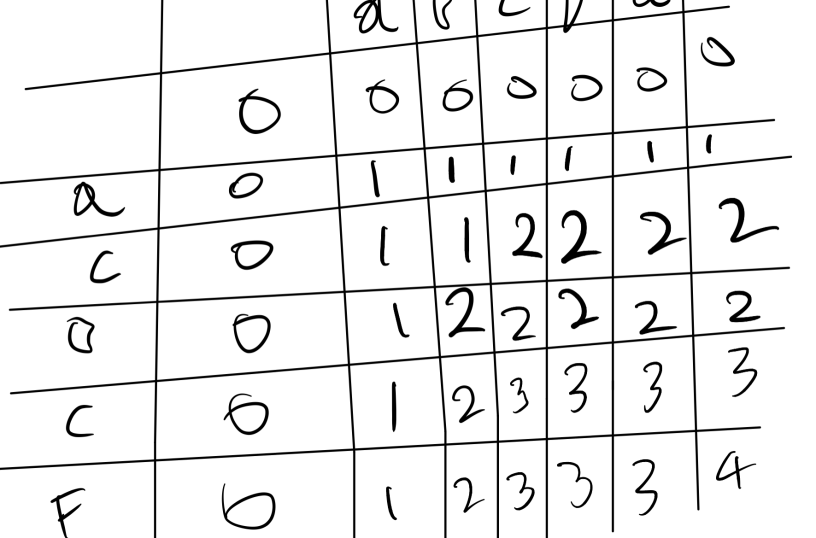 a c
0 0 0 0 0 0 0
a 0 1 1 1 1 1 1
c 0 1 1 2 2 2 2
0 1 2 2 2 2 2
c 0 1 2 3 3 3 3
F 0 1 2 3 3 3 4